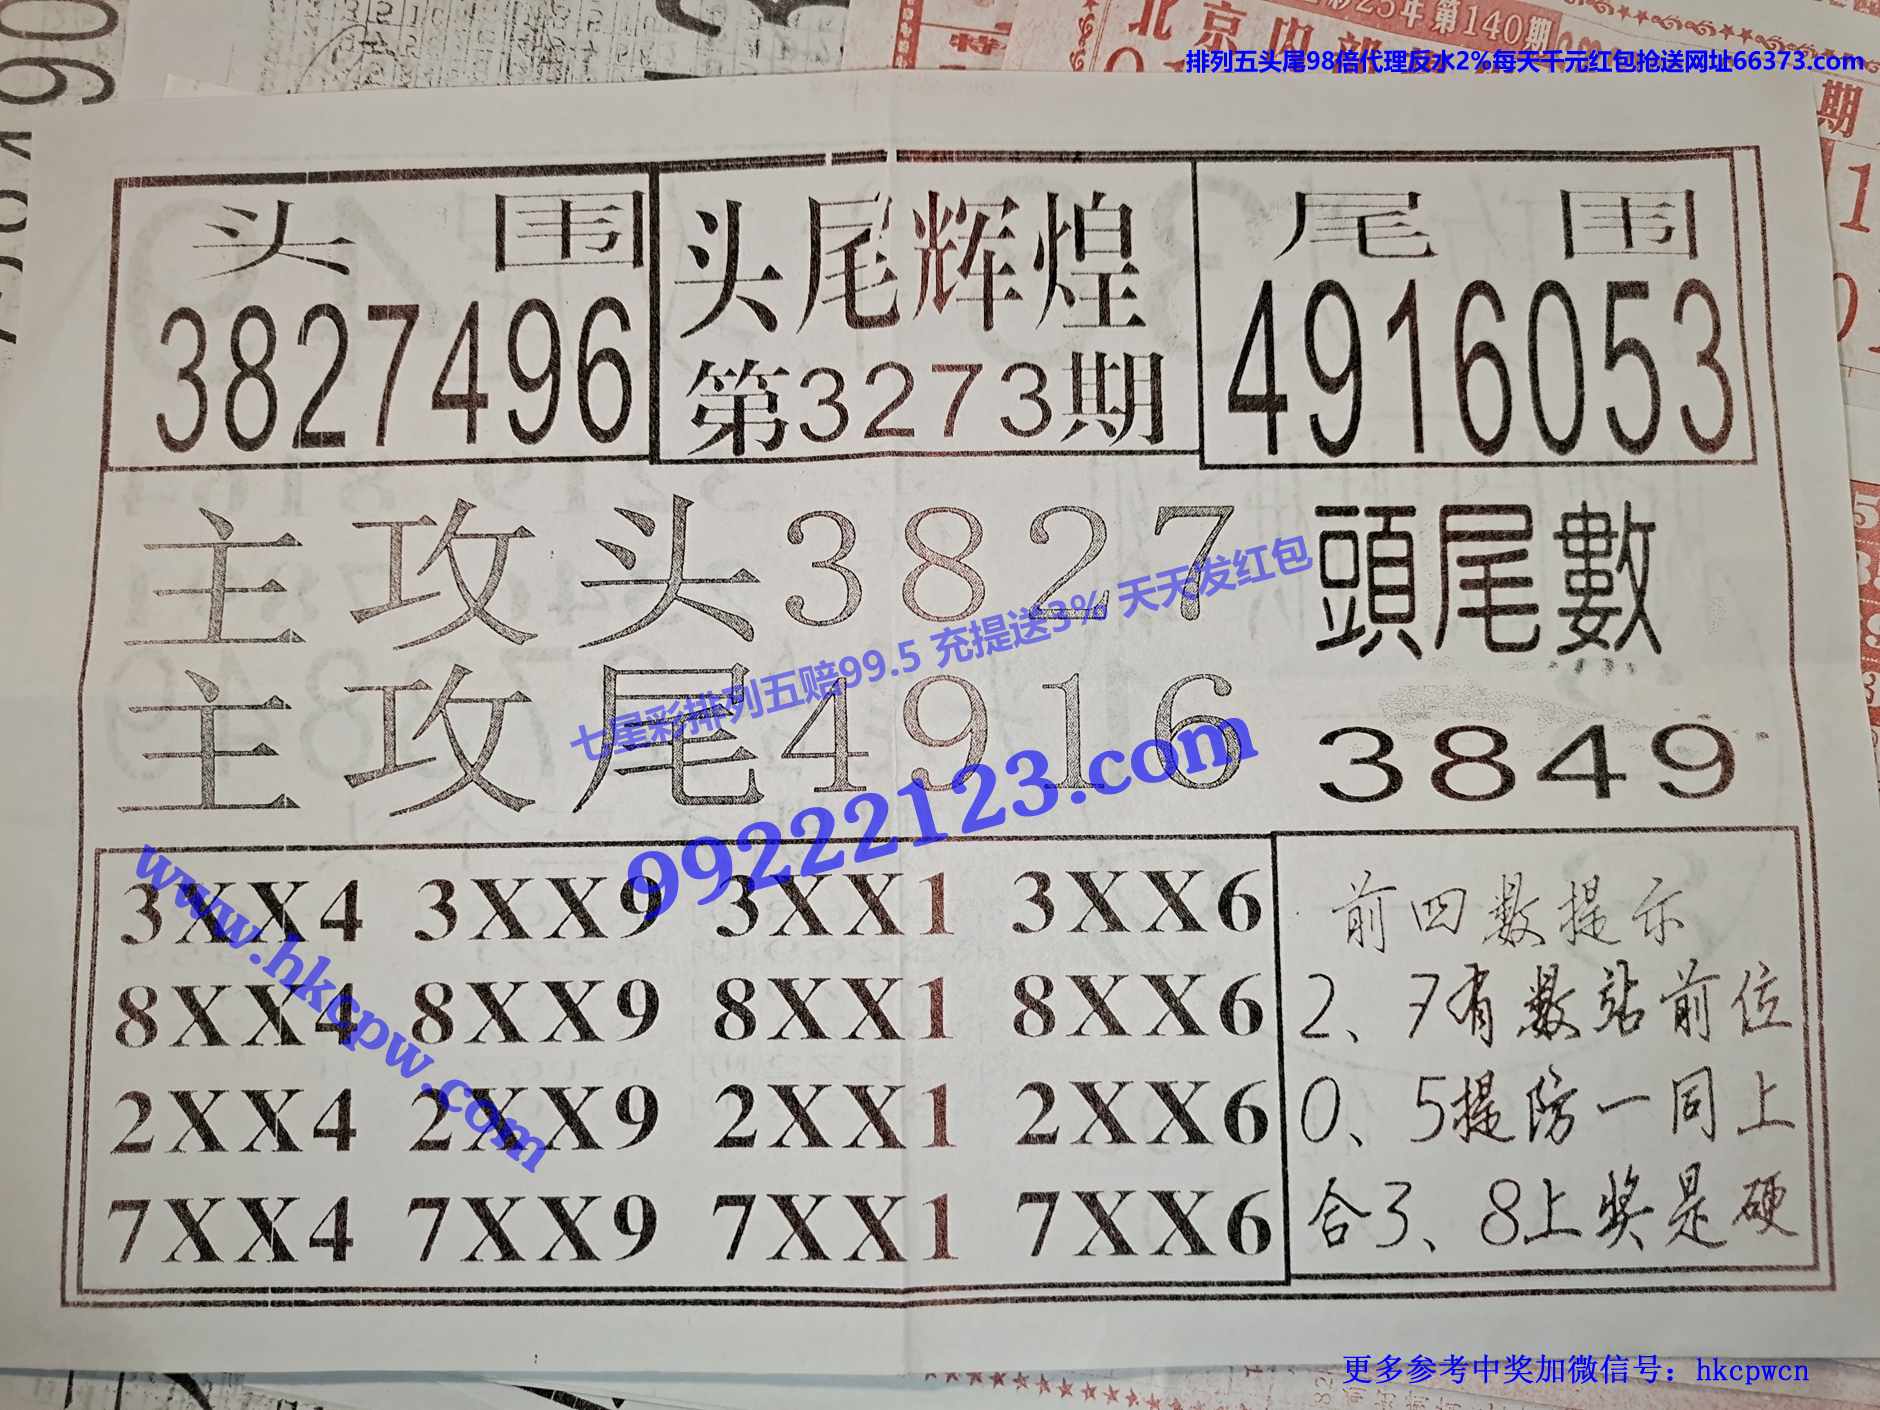 彩25年第140期
北京内部
特
排列五头尾98倍代理反水2%每天千元红包抢送网址66373.com
期
头围
3827496
头尾辉煌
第3273期
尾围
4916053
主攻头3827
頭尾數
主攻尾4916
3849
七星彩排列五赔99.5 充提送3% 天天发红包
99222123.com
www.hkcpw.com
3XX4 3XX9 3XX1 3XX6
8XX4 8XX9 8XX1 8XX6
2XX4 2XX9 2XX1 2XX6
7XX4 7XX9 7XX1 7XX6
前四数提示
2、7有数站前位
0、5提防一同上
合3、8上奖是硬
更多参考中奖加微信号：hkcpwcn